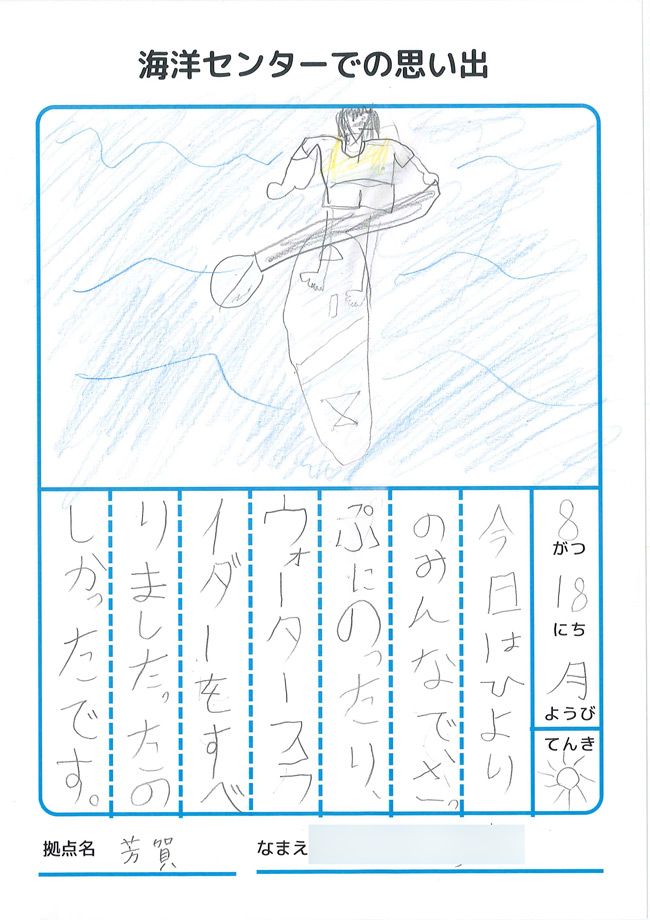 海洋センターでの思い出
8がつ
18にち
月ようび
てんき
今日はひより
のみんなでさっ
ぷにのったり、
ウォータースラ
イダーをすべ
りました。たの
しかったです。
拠点名 芳賀
なまえ